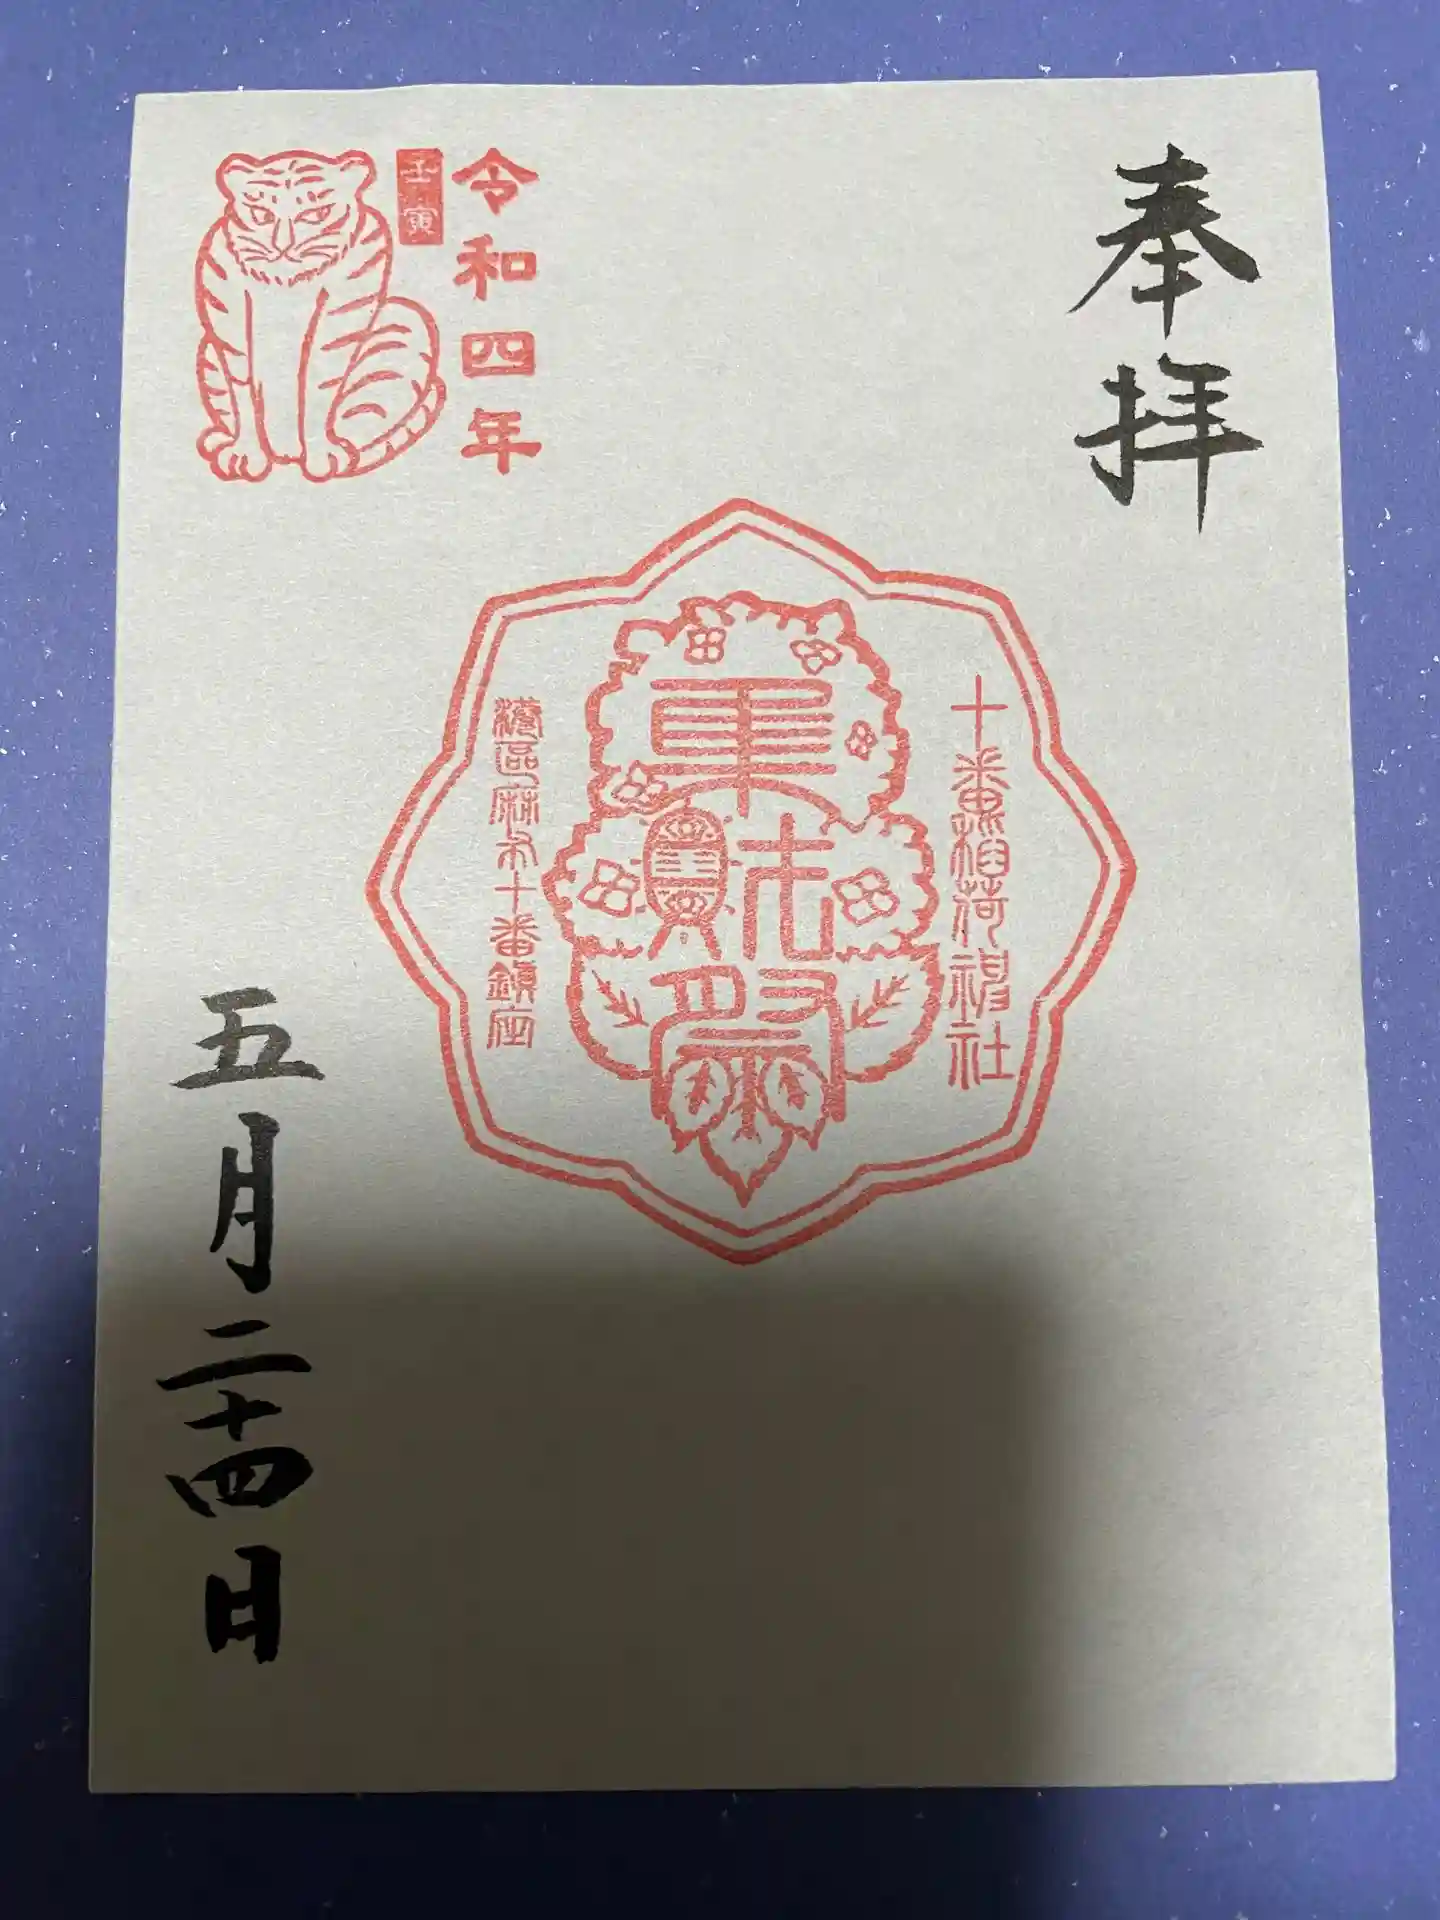 奉拝
十番稲荷神社
港區麻布十番鎮座
令和四年
壬寅
五月二十四日